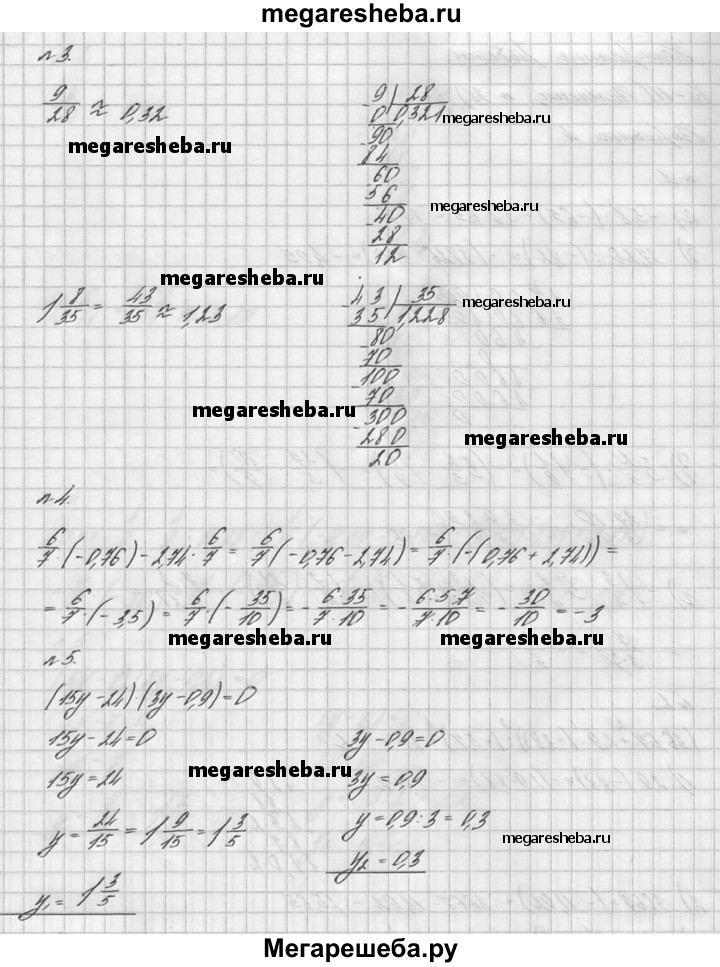 megaresheba.ru
№3.
9/28 ≈ 0,32
9 | 28
0 0,321
90
84
60
56
40
28
12
megaresheba.ru
megaresheba.ru
megaresheba.ru
megaresheba.ru
1 8/35 = 43/35 ≈ 1,23
43 | 35
35 1,228
80
70
100
70
300
280
20
megaresheba.ru
megaresheba.ru
megaresheba.ru
№4.
6/7 · (-0,76) - 2,74 · 6/7 = 6/7 (-0,76 - 2,74) = 6/7 · (-(0,76 + 2,74)) =
= 6/7 · (-3,5) = 6/7 · (-35/10) = - 6·35/7·10 = - 6·5·7/7·10 = - 30/10 = -3
megaresheba.ru
megaresheba.ru
№5.
(15y - 24)·(3y - 0,9) = 0
15y - 24 = 0
15y = 24
y = 24/15 = 1 9/15 = 1 3/5
y₁ = 1 3/5
3y - 0,9 = 0
3y = 0,9
y = 0,9 : 3 = 0,3
y₂ = 0,3
megaresheba.ru
megaresheba.ru
Мегарешеба.ру